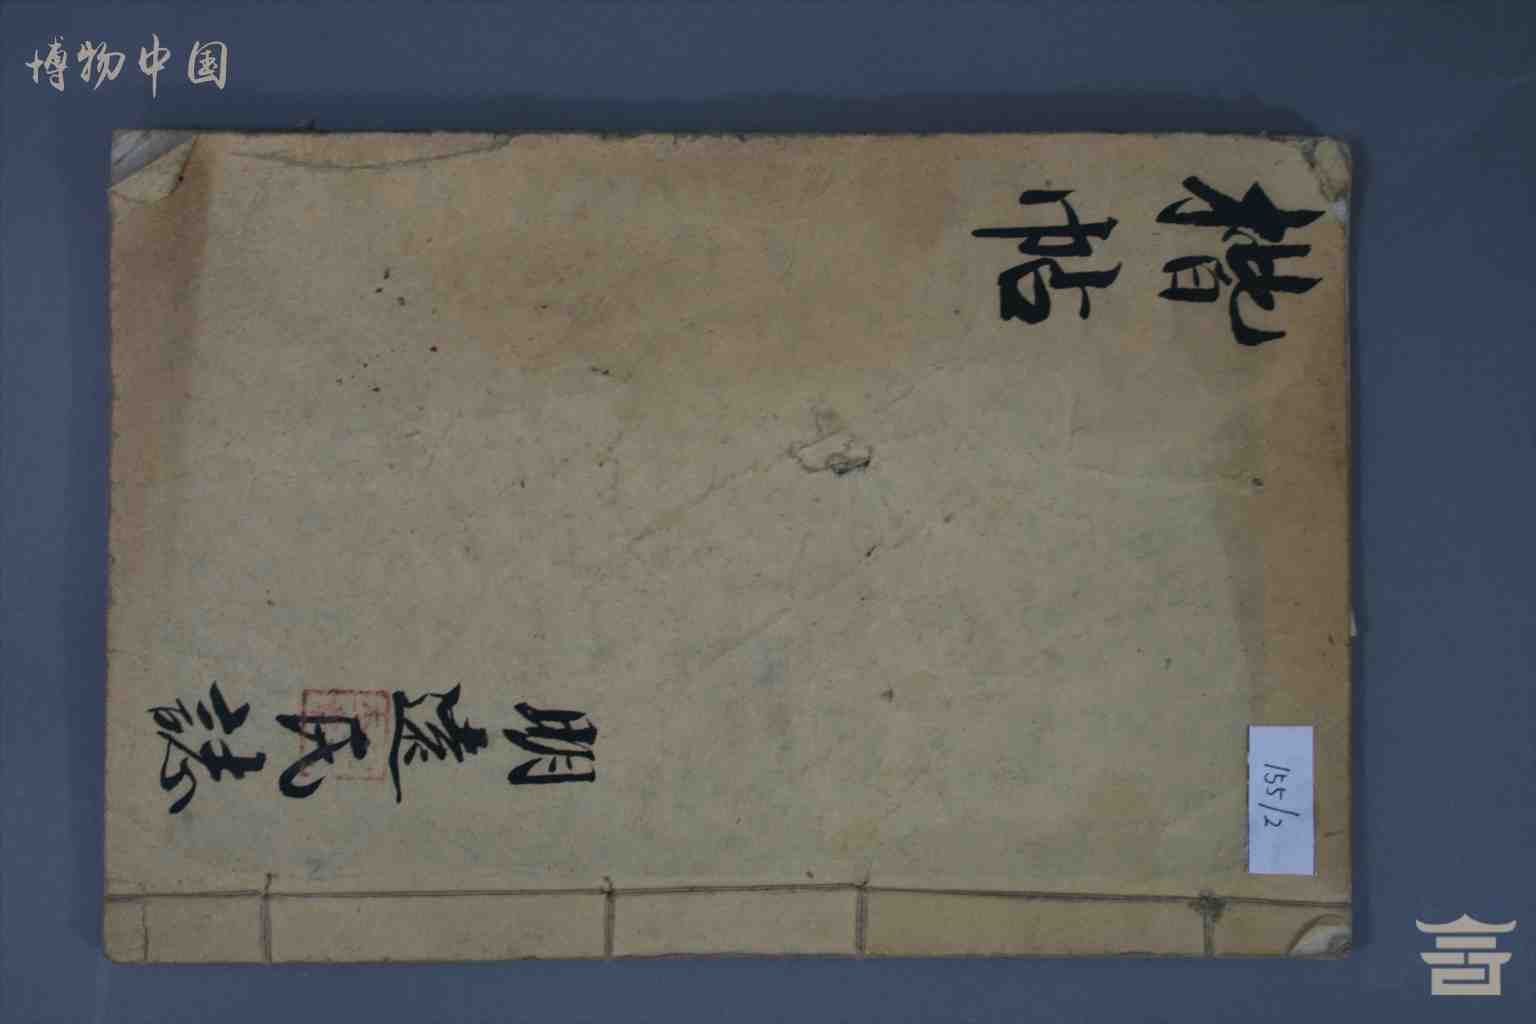 博物中国
楷帖
明氏誌
155/2